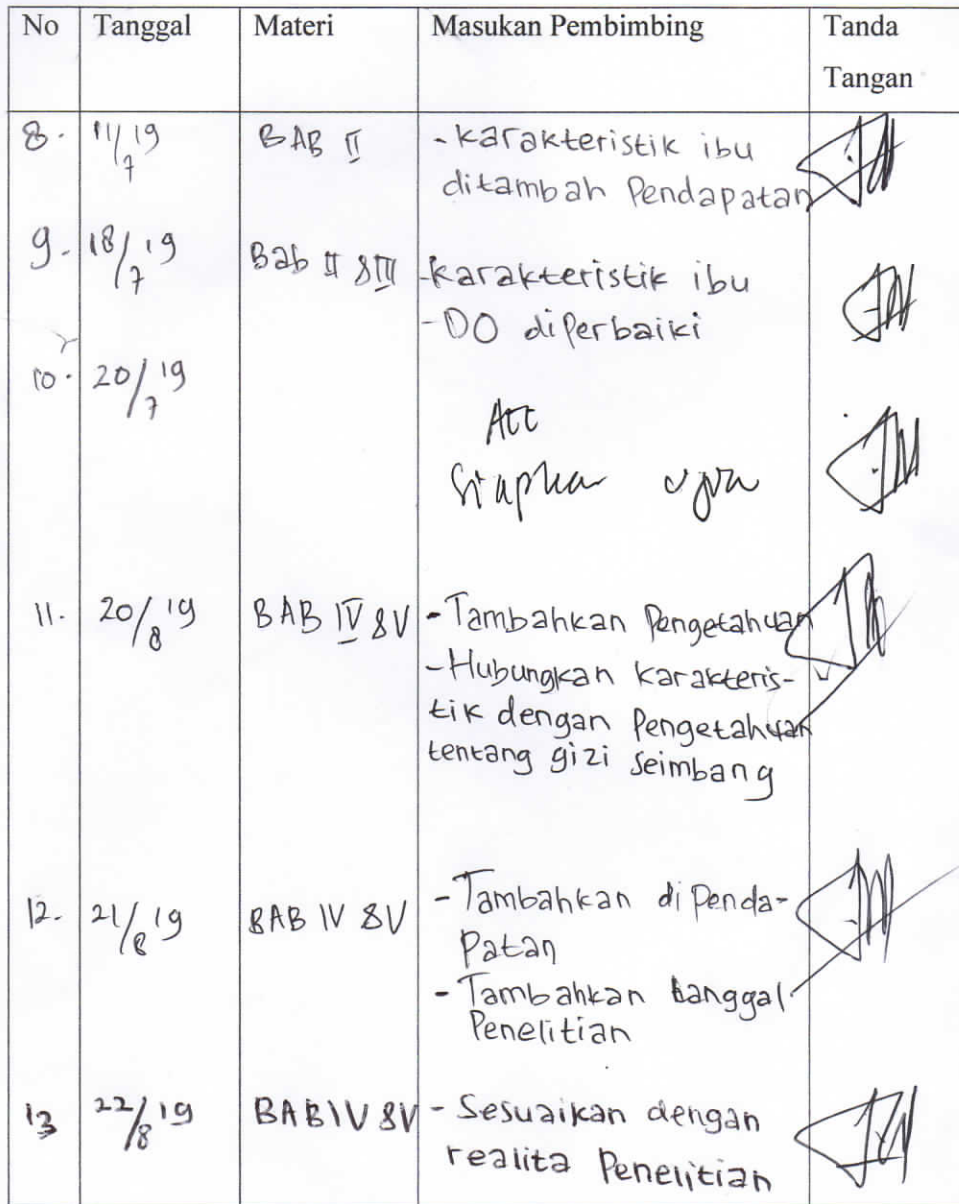 No Tanggal Materi Masukan Pembimbing Tanda
Tangan
8. 11/7 19 BAB II - karakteristik ibu
ditambah Pendapatan
9. 18/7 19 Bab II & III - karakteristik ibu
- DO diPerbaiki
10. 20/7 19
Acc
Siapkan
11. 20/8 19 BAB IV & V - Tambahkan Pengetahuan
- Hubungkan karakteris-
tik dengan Pengetahuan
tentang gizi seimbang
12. 21/8 19 BAB IV & V - Tambahkan di Penda-
Patan
- Tambahkan tanggal
Penelitian
13 22/8 19 BAB IV & V - Sesuaikan dengan
realita Penelitian